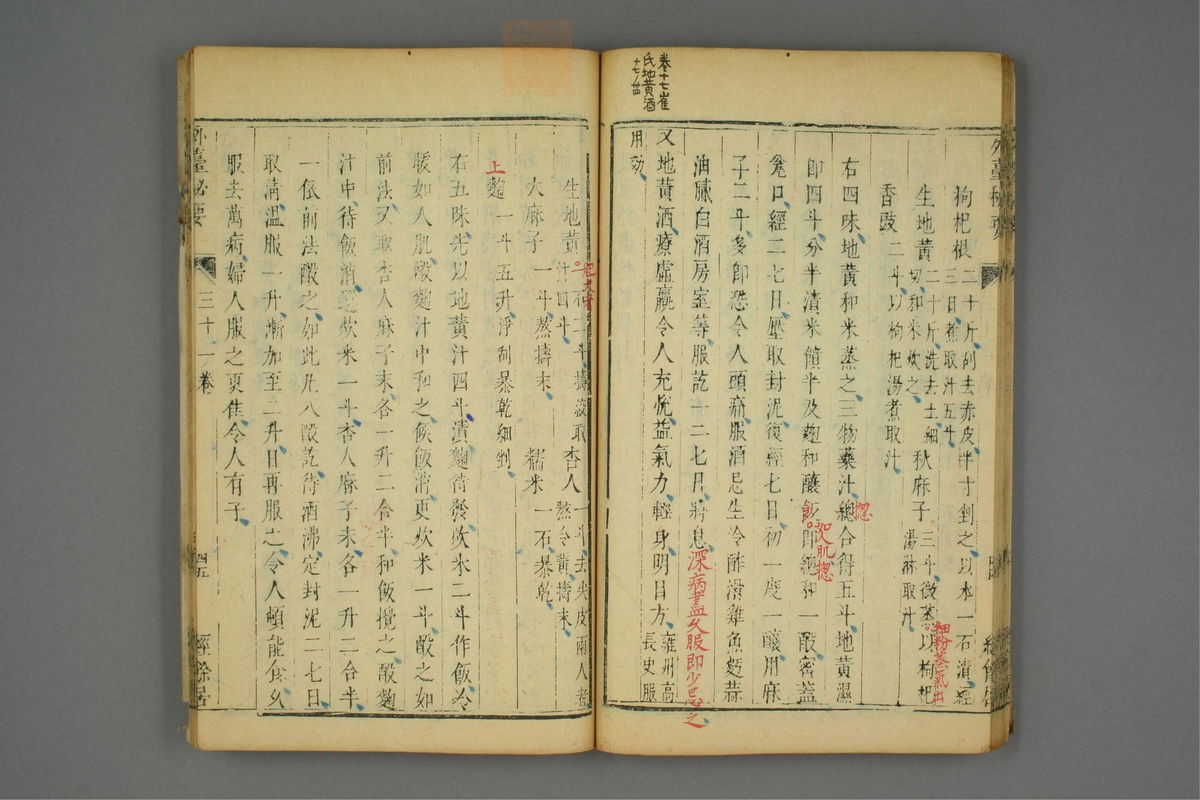 卷十七崔
氏地黃酒
十七ノ廿四
外臺秘要
枸杞根
二十斤刮去赤皮半寸剉之以水一石漬經
三日煮取汁五斗
生地黃
二十斤洗去土細
切和米炊之
秋麻子
三斗微蒸以枸杞
湯淋取汁
細粉蒸氣出
香豉
二斗以枸杞湯煮取汁
右四味地黃和米蒸之三物藥汁總合得五斗地黃濕
揔
即四斗分半漬米饙半及麴和釀飯即總和一酘密蓋
如人肌揔
瓮口經二七日壓取封泥復經七日初一度一釀用麻
子二斗多即恐令人頭痛服酒忌生冷酢滑雞魚麪蒜
油膩白酒房室等服訖十二七月將息
深病盡久服即少忌之
又地黃酒療虛羸令人充悅益氣力輕身明目方
雍州高
長史服
用効
生地黃
汁四斗
大麻子
一斗熬擣末
杏人
一斗去尖皮兩人者
熬令黃擣末
糯米
一石暴乾
上麴
一斗五升淨刮暴乾細剉
右五味先以地黃汁四斗漬麴待發炊米二斗作飯冷
暖如人肌酘麴汁中和之候飯消更炊米一斗酘之如
前法又取杏人麻子末各一升二合半和飯攪之酘麴
汁中待飯消還炊米一斗杏人麻子末各一升二合半
一依前法酘之如此凡八酘訖待酒沸定封泥二七日
取清溫服一升漸加至二升日再服之令人頓能食久
服去萬病婦人服之更佳令人有子
外臺秘要
三十一卷
四五
經餘居